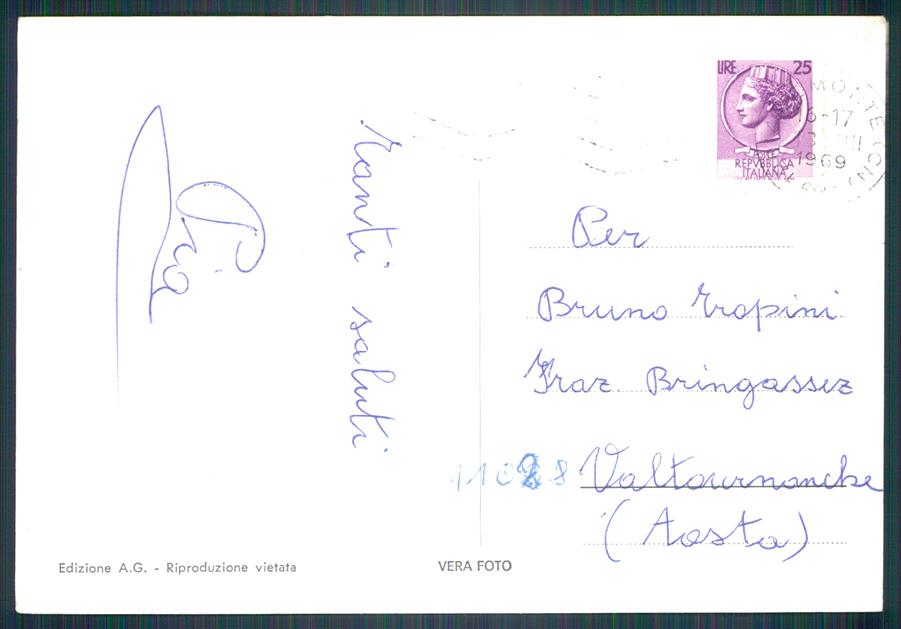 LIRE 25
REPVBBLICA
ITALIANA
16-17
1969
Tanti saluti
Pia
Per
Bruno Tropini
Fraz. Bringassez
11028 Valtournanche
(Aosta)
Edizione A.G. - Riproduzione vietata
VERA FOTO